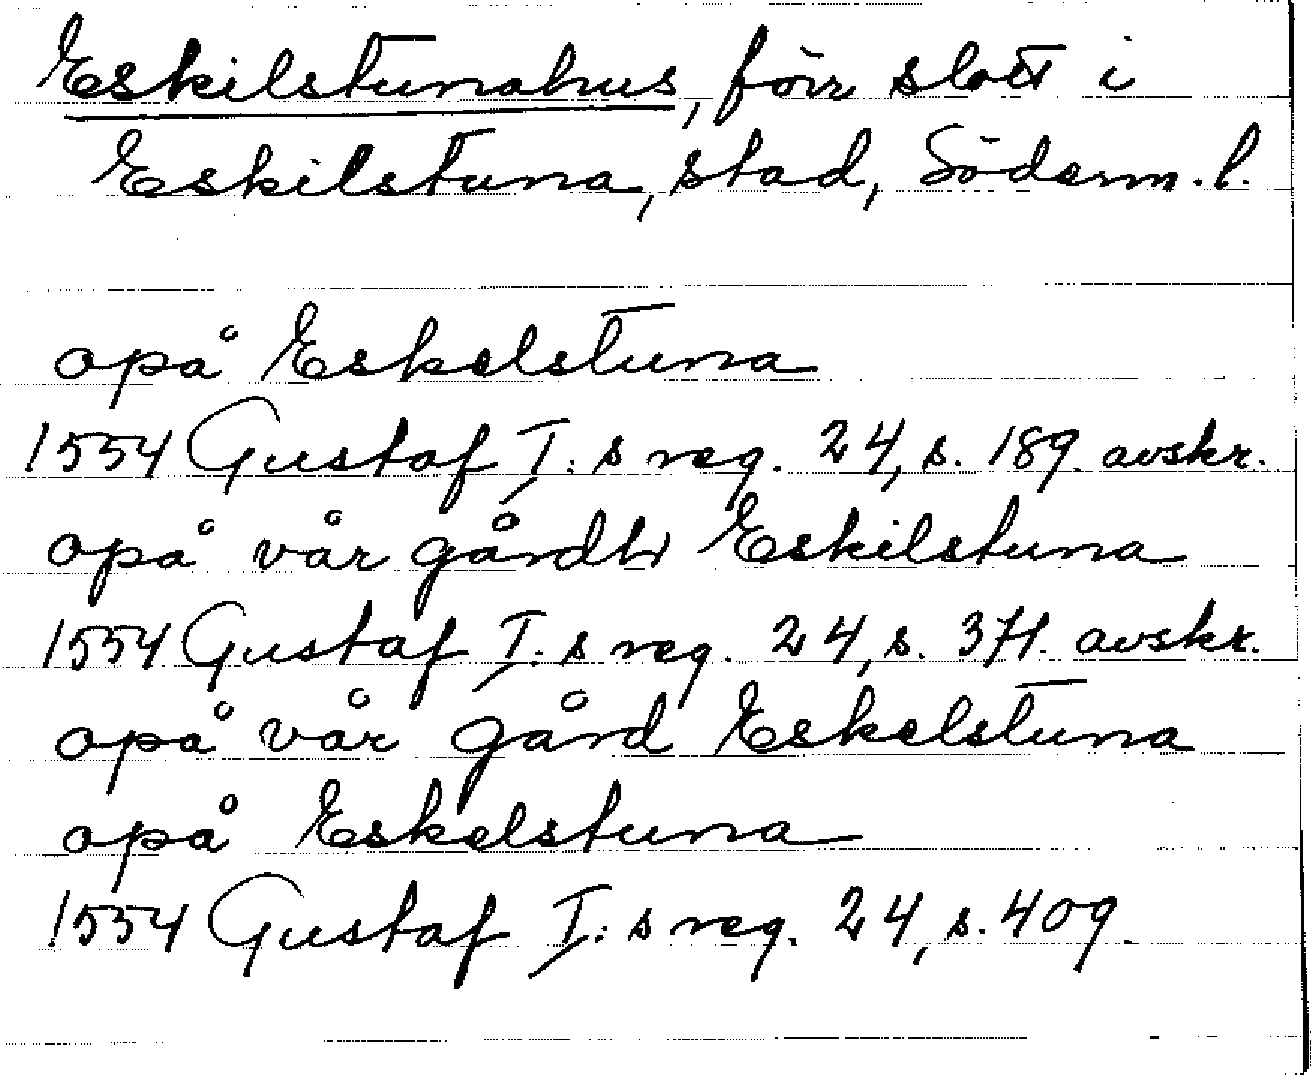 Eskilstunahus, förr slott i
Eskilstuna, stad, Söderm.l.
opå Eskelstuna
1554 Gustaf I:s reg. 24, s. 189. avskr.
opå vår gårdh Eskilstuna
1554 Gustaf I:s reg. 24, s. 371. avskr.
opå vår gård Eskelstuna
opå Eskelstuna
1554 Gustaf I:s reg. 24, s. 409.